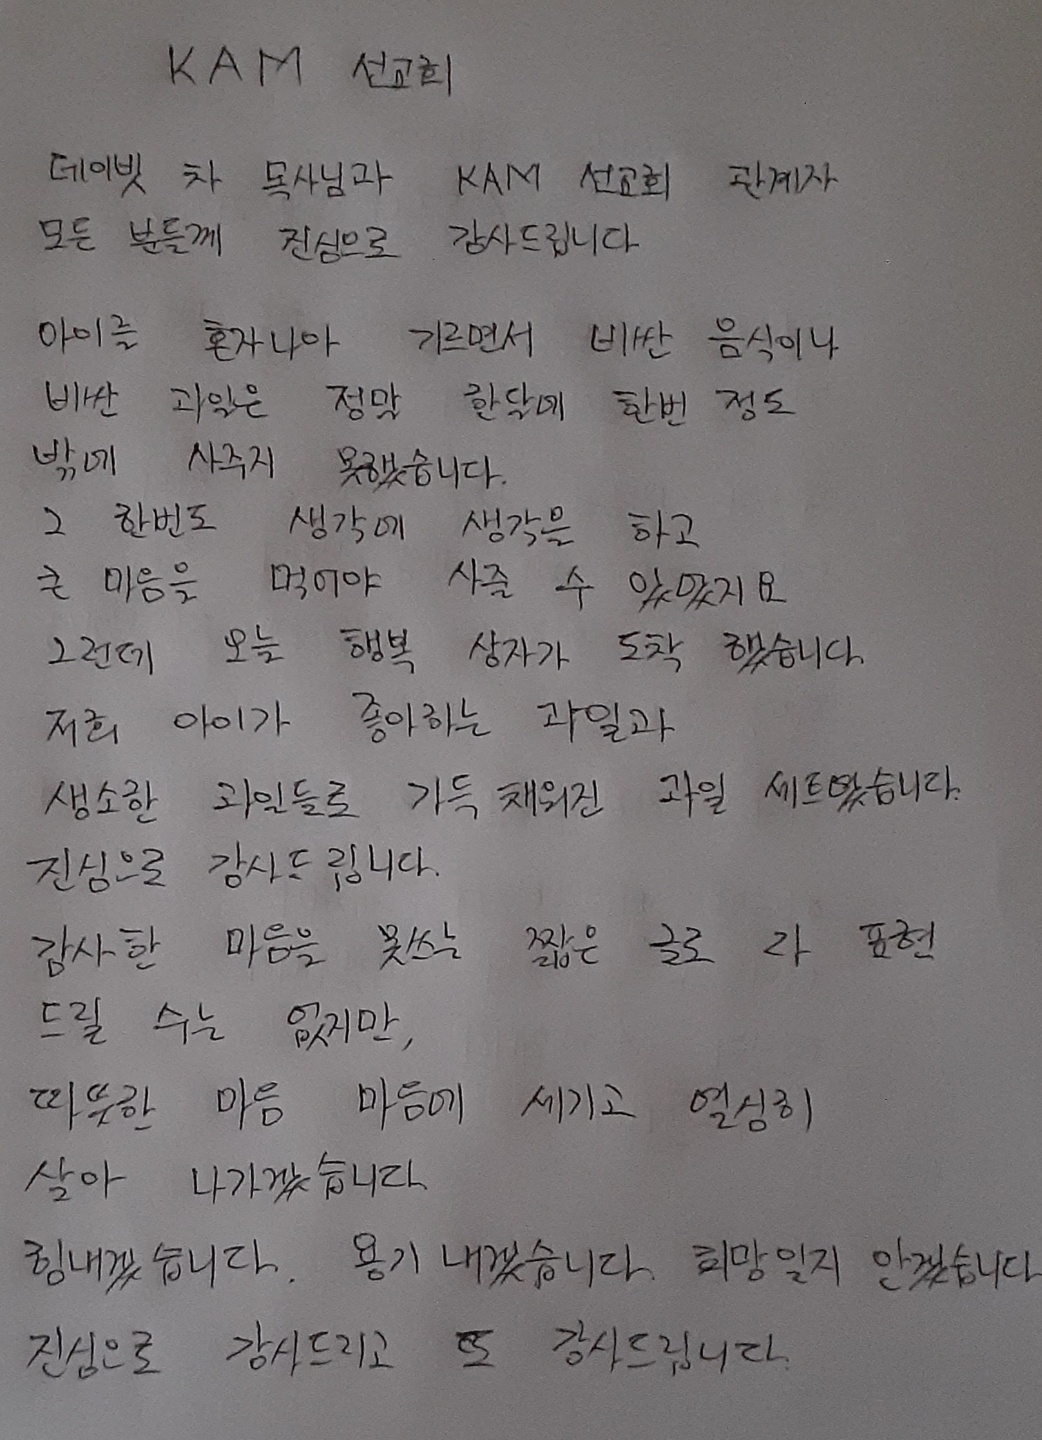 KAM 선교회
데이빗 차 목사님과 KAM 선교회 관계자
모든 분들께 진심으로 감사드립니다
아이를 혼자나아 기르면서 비싼 음식이나
비싼 과일은 정말 한달에 한번 정도
밖에 사주지 못했습니다.
그 한번도 생각에 생각을 하고
큰 마음을 먹어야 사줄 수 있었지요
그런데 오늘 행복 상자가 도착 했습니다.
저희 아이가 좋아하는 과일과
생소한 과일들로 가득 채워진 과일 세트였습니다.
진심으로 감사드립니다.
감사한 마음을 못쓰는 짧은 글로 다 표현
드릴 수는 없지만,
따뜻한 마음 마음에 세기고 열심히
살아 나가겠습니다.
힘내겠습니다. 용기 내겠습니다. 희망잃지 안겠습니다
진심으로 감사드리고 또 감사드립니다.